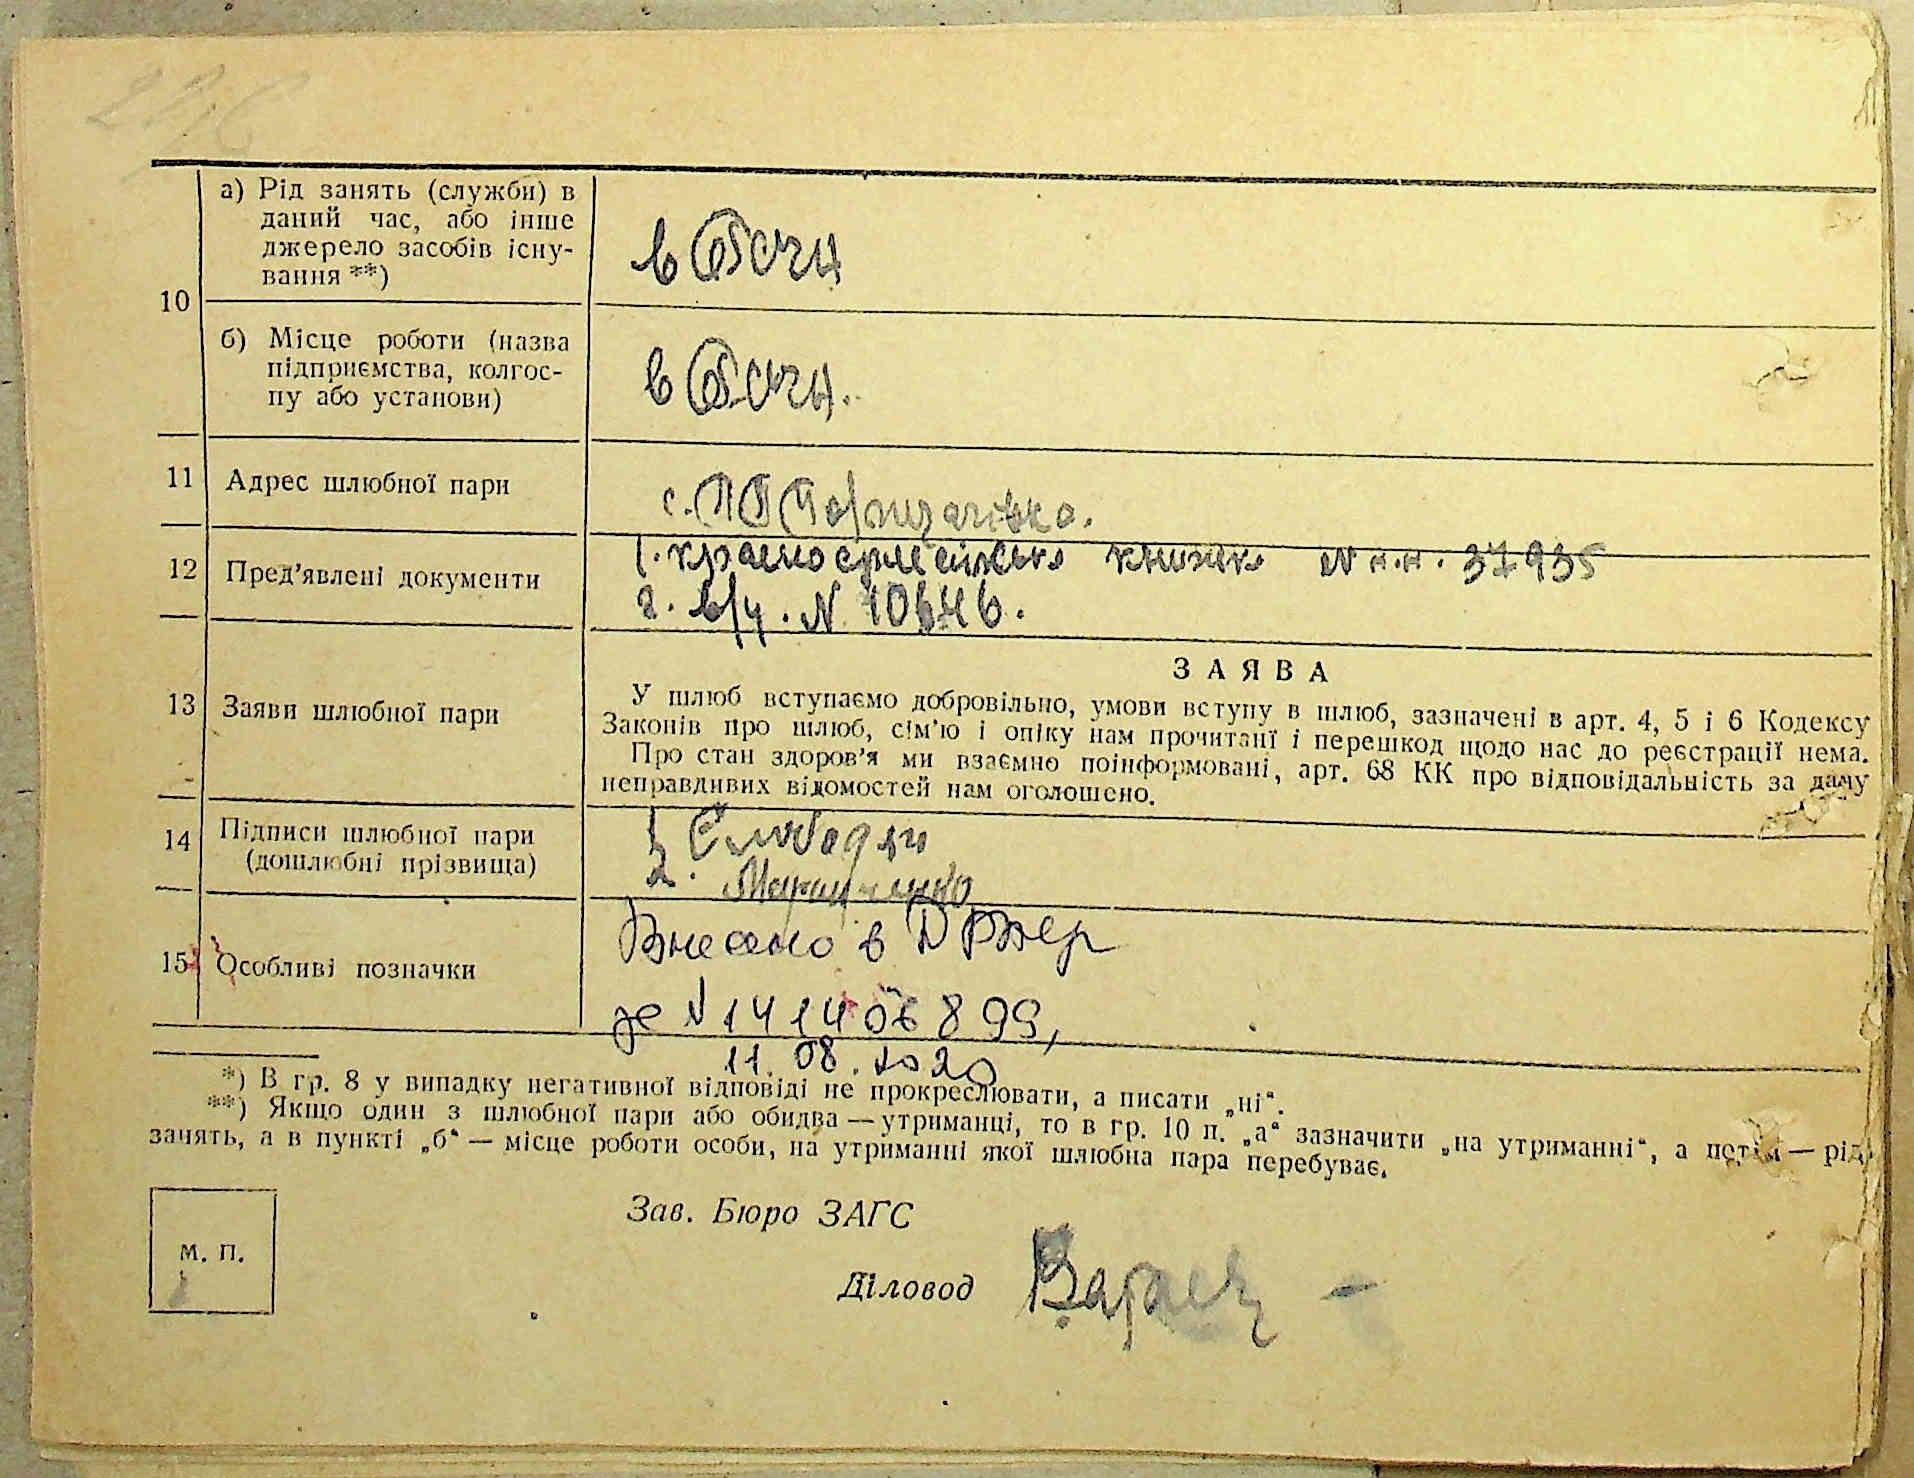 10
а) Рід занять (служби) в
даний час, або інше
джерело засобів існу-
вання **)
в
б) Місце роботи (назва
підприємства, колгос-
пу або установи)
в
11 Адрес шлюбної пари
с.
12 Пред'явлені документи
1. красноармейська книжка N н.н. 37935
2. в/ч. N 10646.
13 Заяви шлюбної пари
ЗАЯВА
У шлюб вступаємо добровільно, умови вступу в шлюб, зазначені в арт. 4, 5 і 6 Кодексу
Законів про шлюб, сім'ю і опіку нам прочитанї і перешкод щодо нас до реєстрації нема.
Про стан здоров'я ми взаємно поінформовані, арт. 68 КК про відповідальність за дачу
неправдивих відомостей нам оголошено.
14 Підписи шлюбної пари
(дошлюбні прізвища)
1.
2.
15 Особливі позначки
Внесено в
N
11.08.2020
*) В гр. 8 у випадку негативної відповіді не прокреслювати, а писати „ні“.
**) Якщо один з шлюбної пари або обидва — утриманці, то в гр. 10 п. „а“ зазначити „на утриманні“, а потім — рід
занять, а в пункті „б“ — місце роботи особи, на утриманні якої шлюбна пара перебуває.
м. п.
Зав. Бюро ЗАГС
Діловод